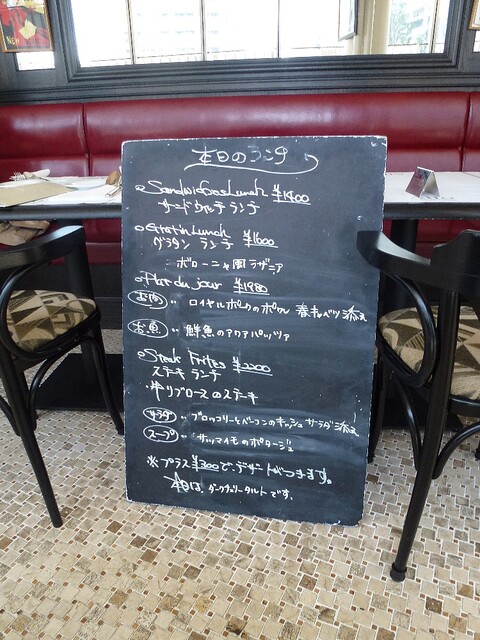 本日のランチ
Sandwiches Lunch ¥1400
サンドウィッチ ランチ
Gratin Lunch
グラタン ランチ ¥1600
ボローニャ風 ラザニア
Plat du jour ¥1980
お肉 ロイヤルポークのポワレ 春キャベツ添え
お魚 鮮魚のアクアパッツァ
Steak Frites ¥2200
ステーキ ランチ
牛リブロースのステーキ
サラダ ブロッコリーとベーコンのキッシュ サラダ添え
スープ サツマイモのポタージュ
※プラス¥300で、デザートがつきます。
本日は、ダークチェリータルトです。
NEW